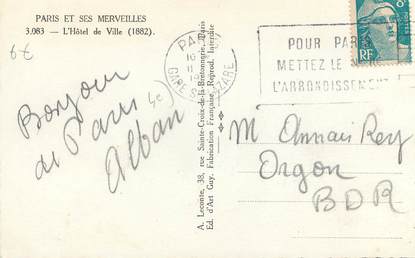 PARIS ET SES MERVEILLES
3.083 — L'Hôtel de Ville (1882).
6€
Bonjour
de Paris 4e
Alban
A. Leconte, 38, rue Sainte-Croix-de-la-Bretonnerie, Paris
Ed. d'Art Guy. Fabrication Française. Reprod. Interdite
PARIS
16
GARE ST LAZARE
POUR PARIS
METTEZ LE
L'ARRONDISSEMENT
8F
M Annais Rey
Orgon
BDR